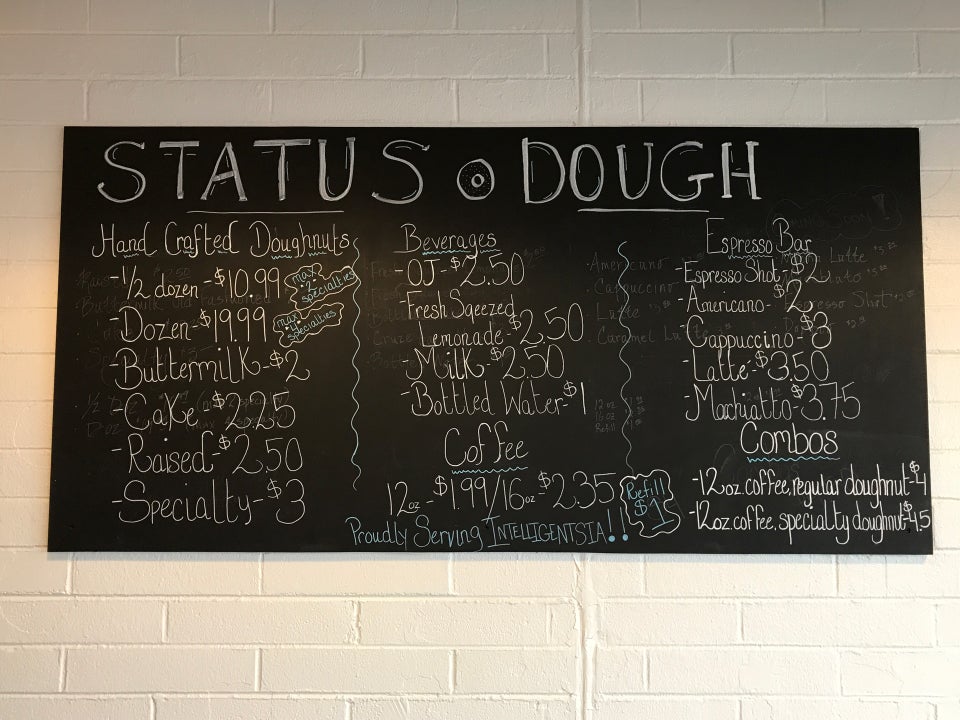 STATUS DOUGH
Hand Crafted Doughnuts
-1/2 dozen -$10.99
max 2 specialties
-Dozen-$19.99
max 4 specialties
-Buttermilk-$2
-Cake-$2.25
-Raised-$2.50
-Specialty-$3
Beverages
-OJ-$2.50
-Fresh Sqeezed
Lemonade-$2.50
-Milk-$2.50
-Bottled Water-$1
Coffee
12oz-$1.99/16oz-$2.35
Refill $1
Proudly Serving INTELLIGENTSIA!!
Espresso Bar
-Espresso Shot-$2
-Americano-$2
-Cappuccino-$3
-Latte-$3.50
-Macchiatto-$3.75
Combos
-12oz.coffee,regular doughnut-$4
-12oz.coffee,specialty doughnut-$4.5